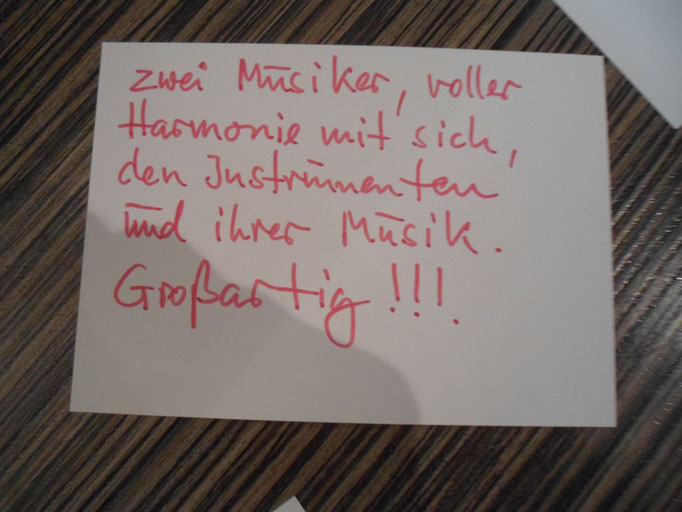 zwei Musiker, voller
Harmonie mit sich,
den Instrumenten
und ihrer Musik.
Großartig !!!.